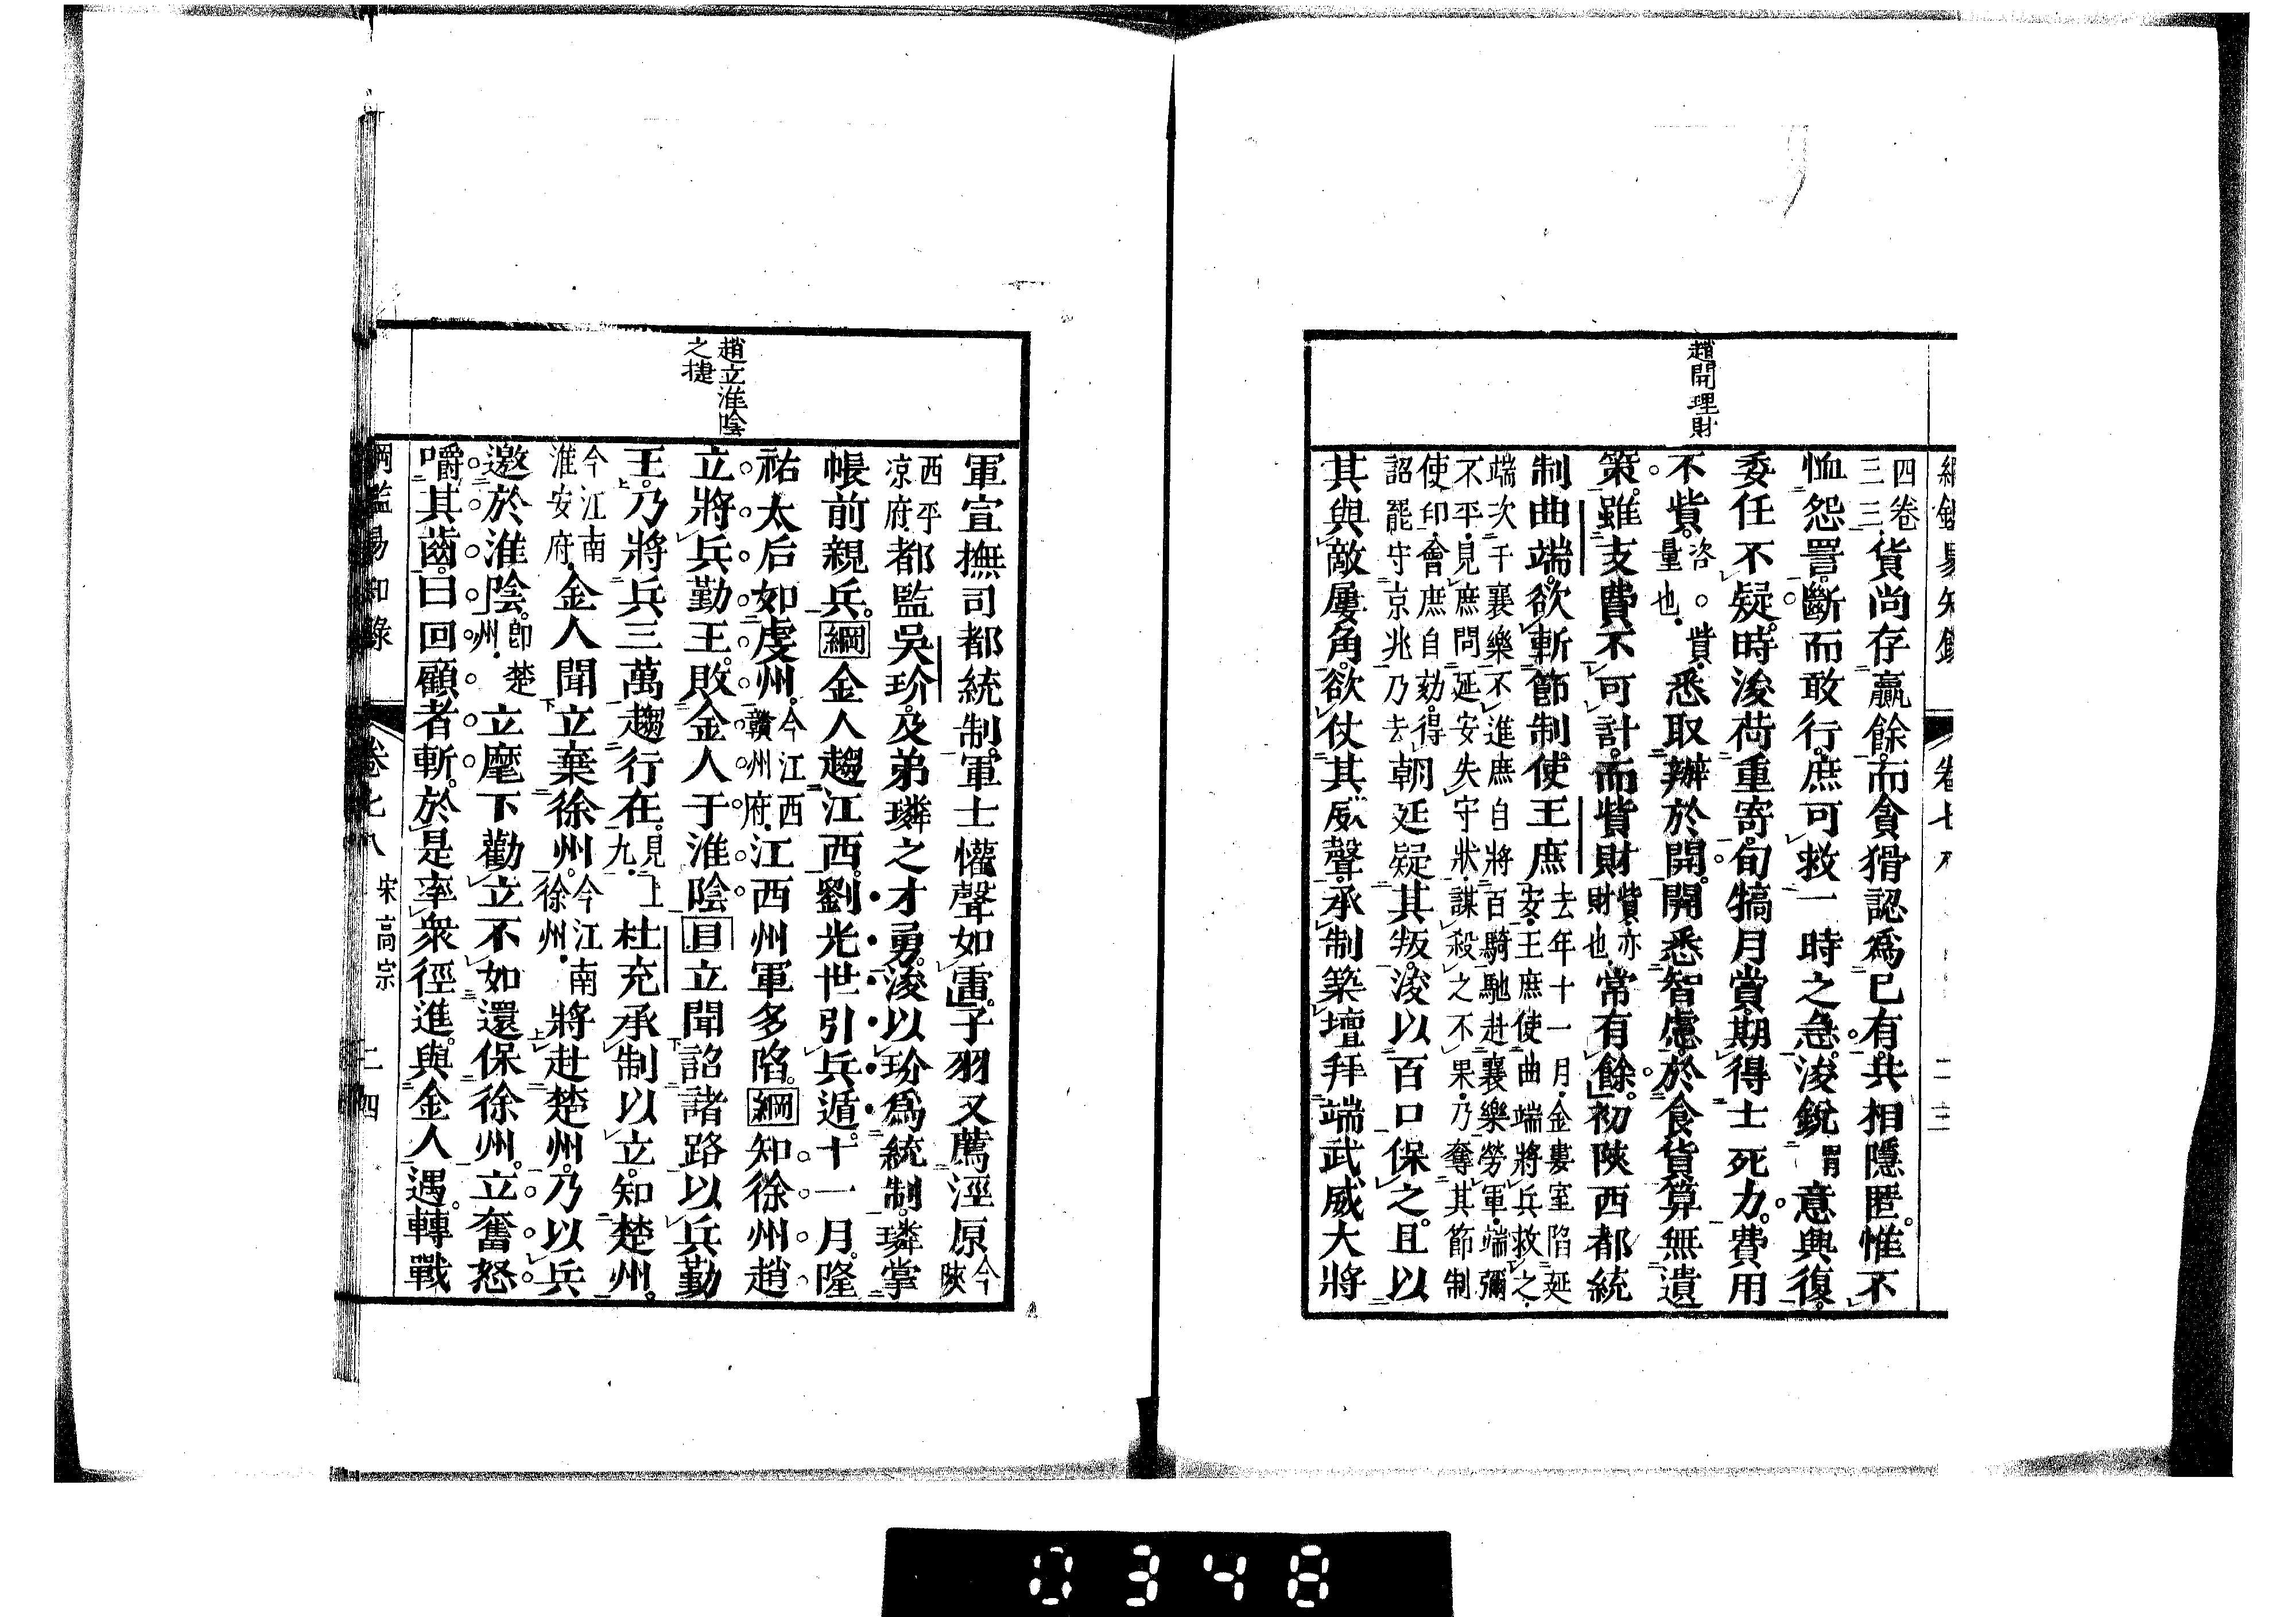 綱鑑易知錄 卷七八 二三
趙開理財
四卷三三貨尚存贏餘而貪猾認爲己有共相隱匿惟不
恤怨詈斷而敢行庶可救一時之急浚銳意興復
委任不疑時浚荷重寄旬犒月賞期得士死力費用
不貲咨量也貲悉取辦於開開悉智慮於食貨算無遺
策雖支費不可計而貲財貲亦財也常有餘初陝西都統
制曲端欲斬節制使王庶去年十一月金婁室陷延安王庶使曲端將兵救之
端次于襄樂不進庶自將百騎馳赴襄樂勞軍端彌
不平見庶問延安失守狀謀殺之不果乃奪其節制
使印會庶自劾得
詔罷守京兆乃去朝廷疑其叛浚以百口保之且以
其與敵屢角欲仗其威聲承制築壇拜端武威大將
趙立淮陰
之捷
軍宣撫司都統制軍士懽聲如雷子羽又薦涇原今陝
西平凉府都監吳玠及弟璘之才勇浚以玠爲統制璘掌
帳前親兵綱金人趨江西劉光世引兵遁十一月隆
祐太后如虔州今江西贛州府江西州軍多陷綱知徐州趙
立將兵勤王敗金人于淮陰目立聞詔諸路以兵勤
王乃將兵三萬趨行在見上九杜充承制以立知楚州
今江南淮安府金人聞立棄徐州今江南徐州將赴楚州乃以兵
邀於淮陰卽楚州立麾下勸立不如還保徐州立奮怒
嚼其齒曰回顧者斬於是率衆徑進與金人遇轉戰
綱鑑易知錄 卷七八 宋高宗 二四
0348